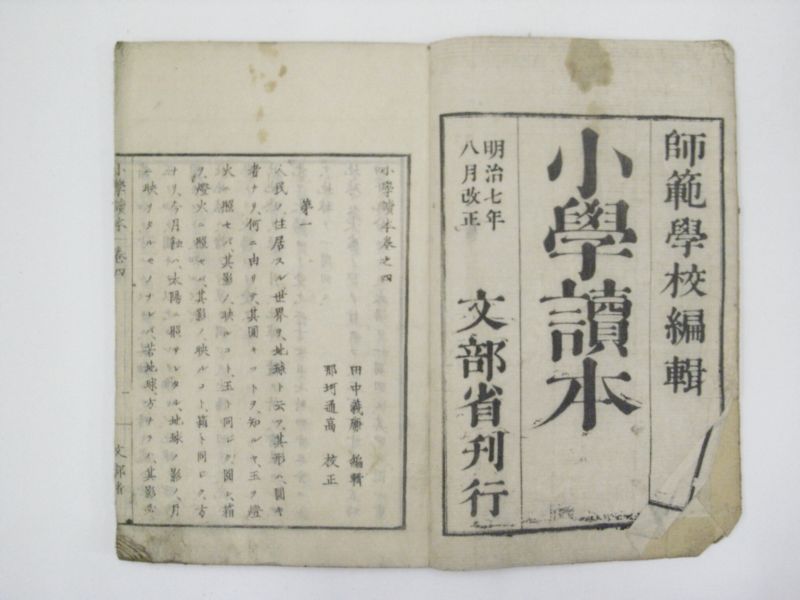 師範學校編輯
小學讀本
明治七年
八月改正
文部省刊行
小學讀本卷之四
田中義廉 編輯
那珂通高 校正
第一
人民ノ住居スル世界ヲ、地球ト云フ、其形ハ、圓キ
者ナリ、何ニ由リテ、其圓キコトヲ、知ルヤ、玉ヲ燈
火ニ照セバ、其影ノ映ルコト、玉ト同ジク、圓シ、箱
ヲ、燈火ニ照セバ、其影ノ、映ルコト、箱ト同ジク、方
ナリ、今月蝕ハ、太陽ニ照サレタル、地球ノ影ノ、月
ニ映リタルモノナレバ、若地球、方ナラバ、其影モ
小學讀本 卷四
文部省